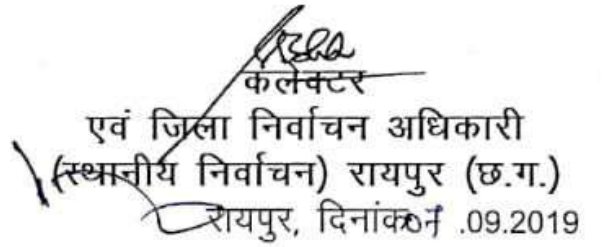 कलेक्टर
एवं जिला निर्वाचन अधिकारी
(स्थानीय निर्वाचन) रायपुर (छ.ग.)
रायपुर, दिनांक .09.2019